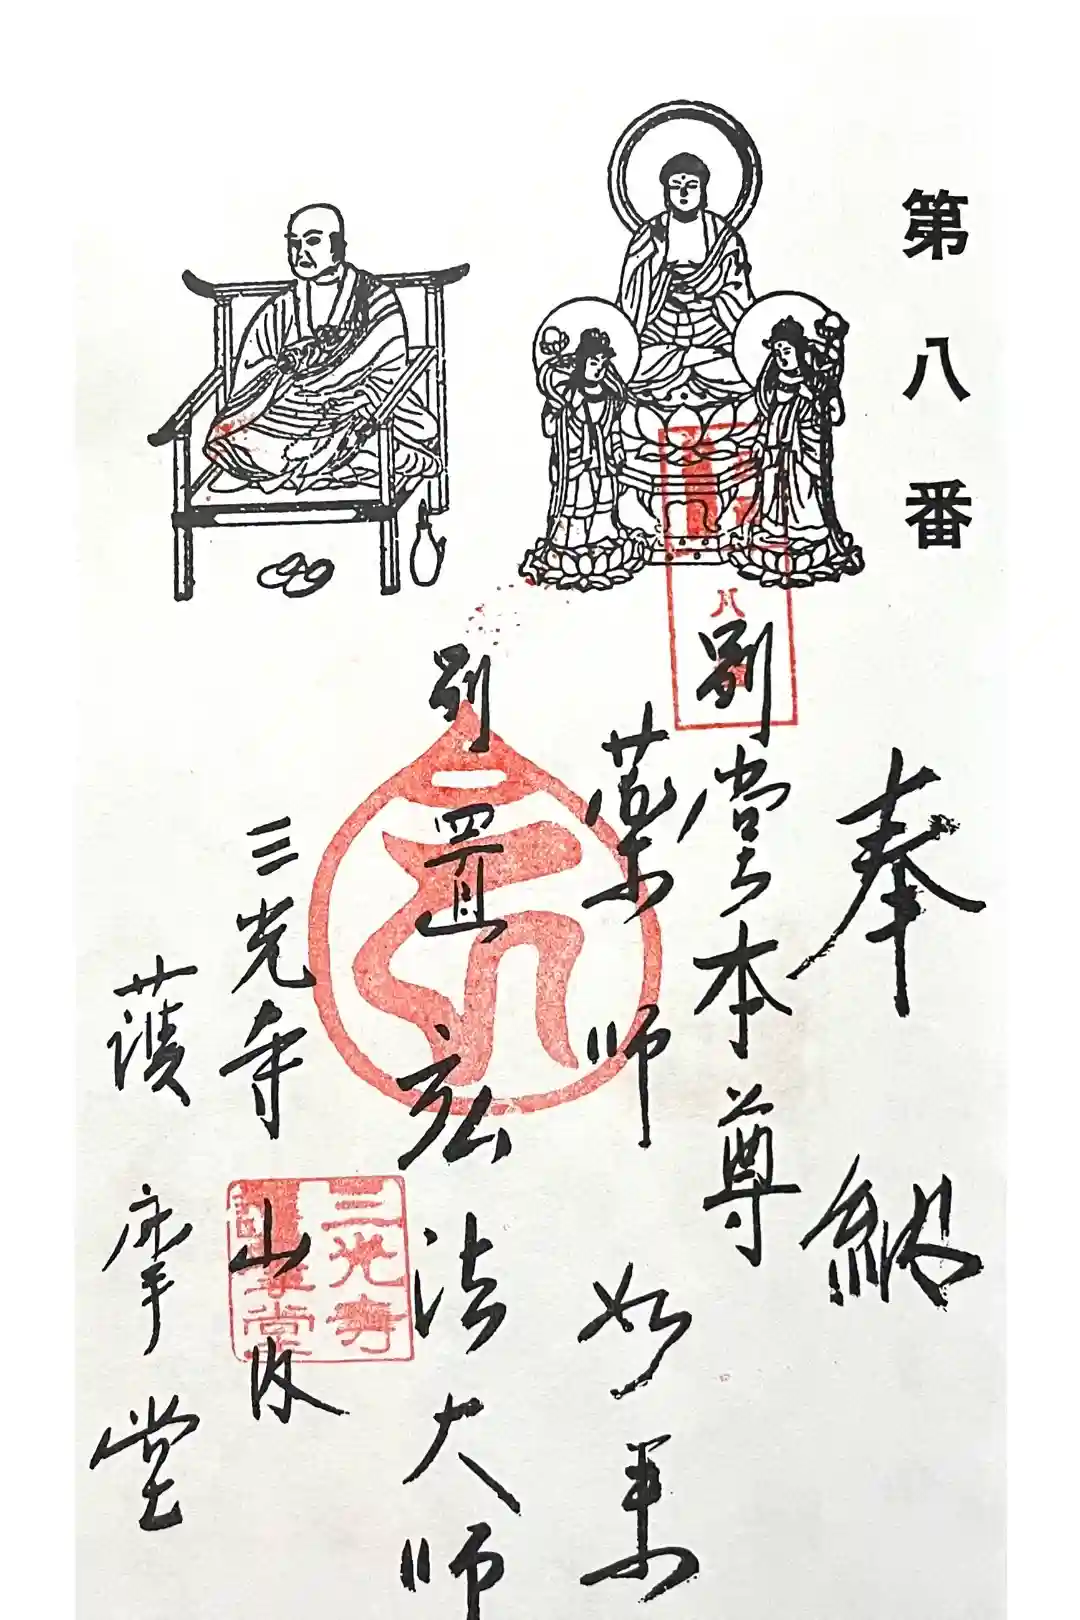 第八番
奉納
別堂本尊
薬師如来
別置弘法大師
三光寺山
護摩堂
三光寺
堂
八